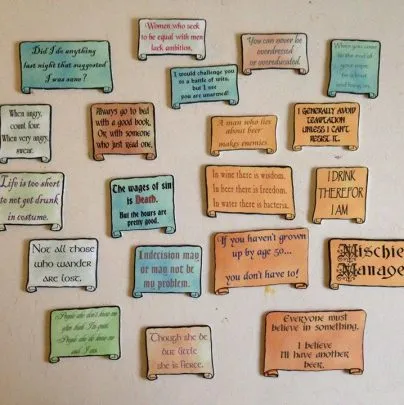 Did I do anything
last night that suggested
I was sane?
Women who seek
to be equal with men
lack ambition.
You can never be
overdressed
or overeducated.
When you come
to the end of
your rope
tie a knot
and hang on.
I would challenge you
to a battle of wits,
but I see
you are unarmed!
When angry,
count four.
When very angry,
swear.
Always go to bed
with a good book,
Or with someone
who just read one.
A man who lies
about beer
makes enemies
I GENERALLY AVOID
TEMPTATION
UNLESS I CAN'T
RESIST IT.
Life is too short
to not get drunk
in costume.
The wages of sin
is Death.
But the hours are
pretty good.
In wine there is wisdom.
In beer there is freedom.
In water there is bacteria.
I DRINK
THEREFOR
I AM
Not all those
who wander
are lost.
Indecision may
or may not be
my problem.
If you haven't grown
up by age 50...
you don't have to!
Mischief
Manage
People who don't know me
think I'm quiet.
People who do know me
wish I was.
Though she be
but little
she is fierce.
Everyone must
believe in something.
I believe
I'll have another
beer.